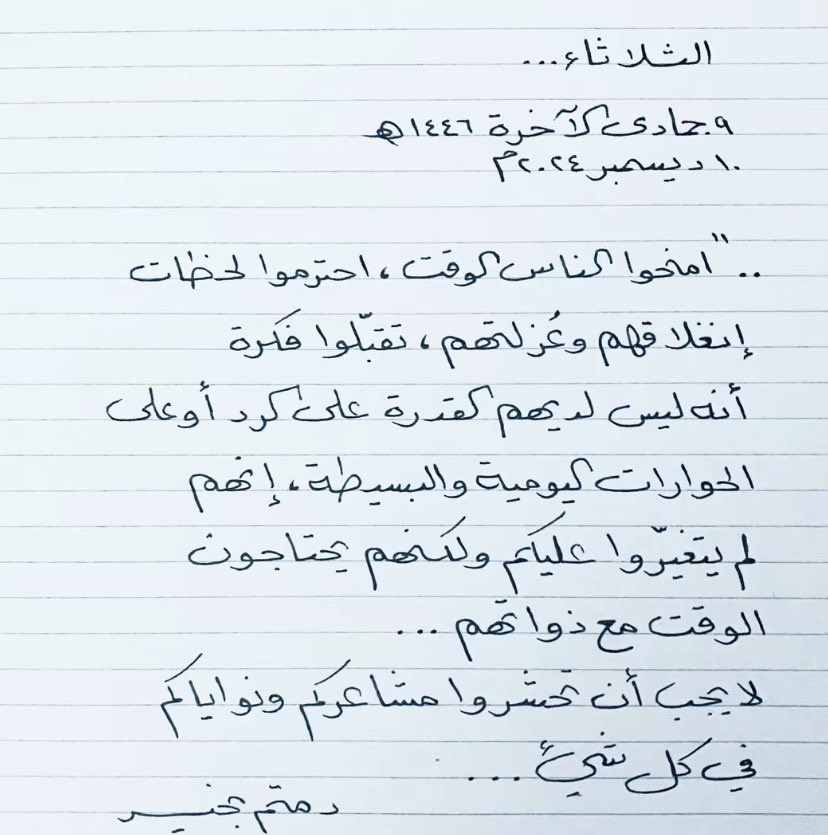 الثلاثاء...
٩ جمادى الآخرة ١٤٤٦هـ
١٠ ديسمبر ٢٠٢٤م
.." امنحوا الناس الوقت، احترموا لحظات
إنغلاقهم وعُزلتهم، تقبّلوا فكرة
أنه ليس لديهم القدرة على الرد أو على
الحوارات اليومية والبسيطة، إنهم
لم يتغيّروا عليكم ولكنهم يحتاجون
الوقت مع ذواتهم...
لا يجب أن تحشروا مشاعركم ونواياكم
في كل شيئ...
دمتم بخير